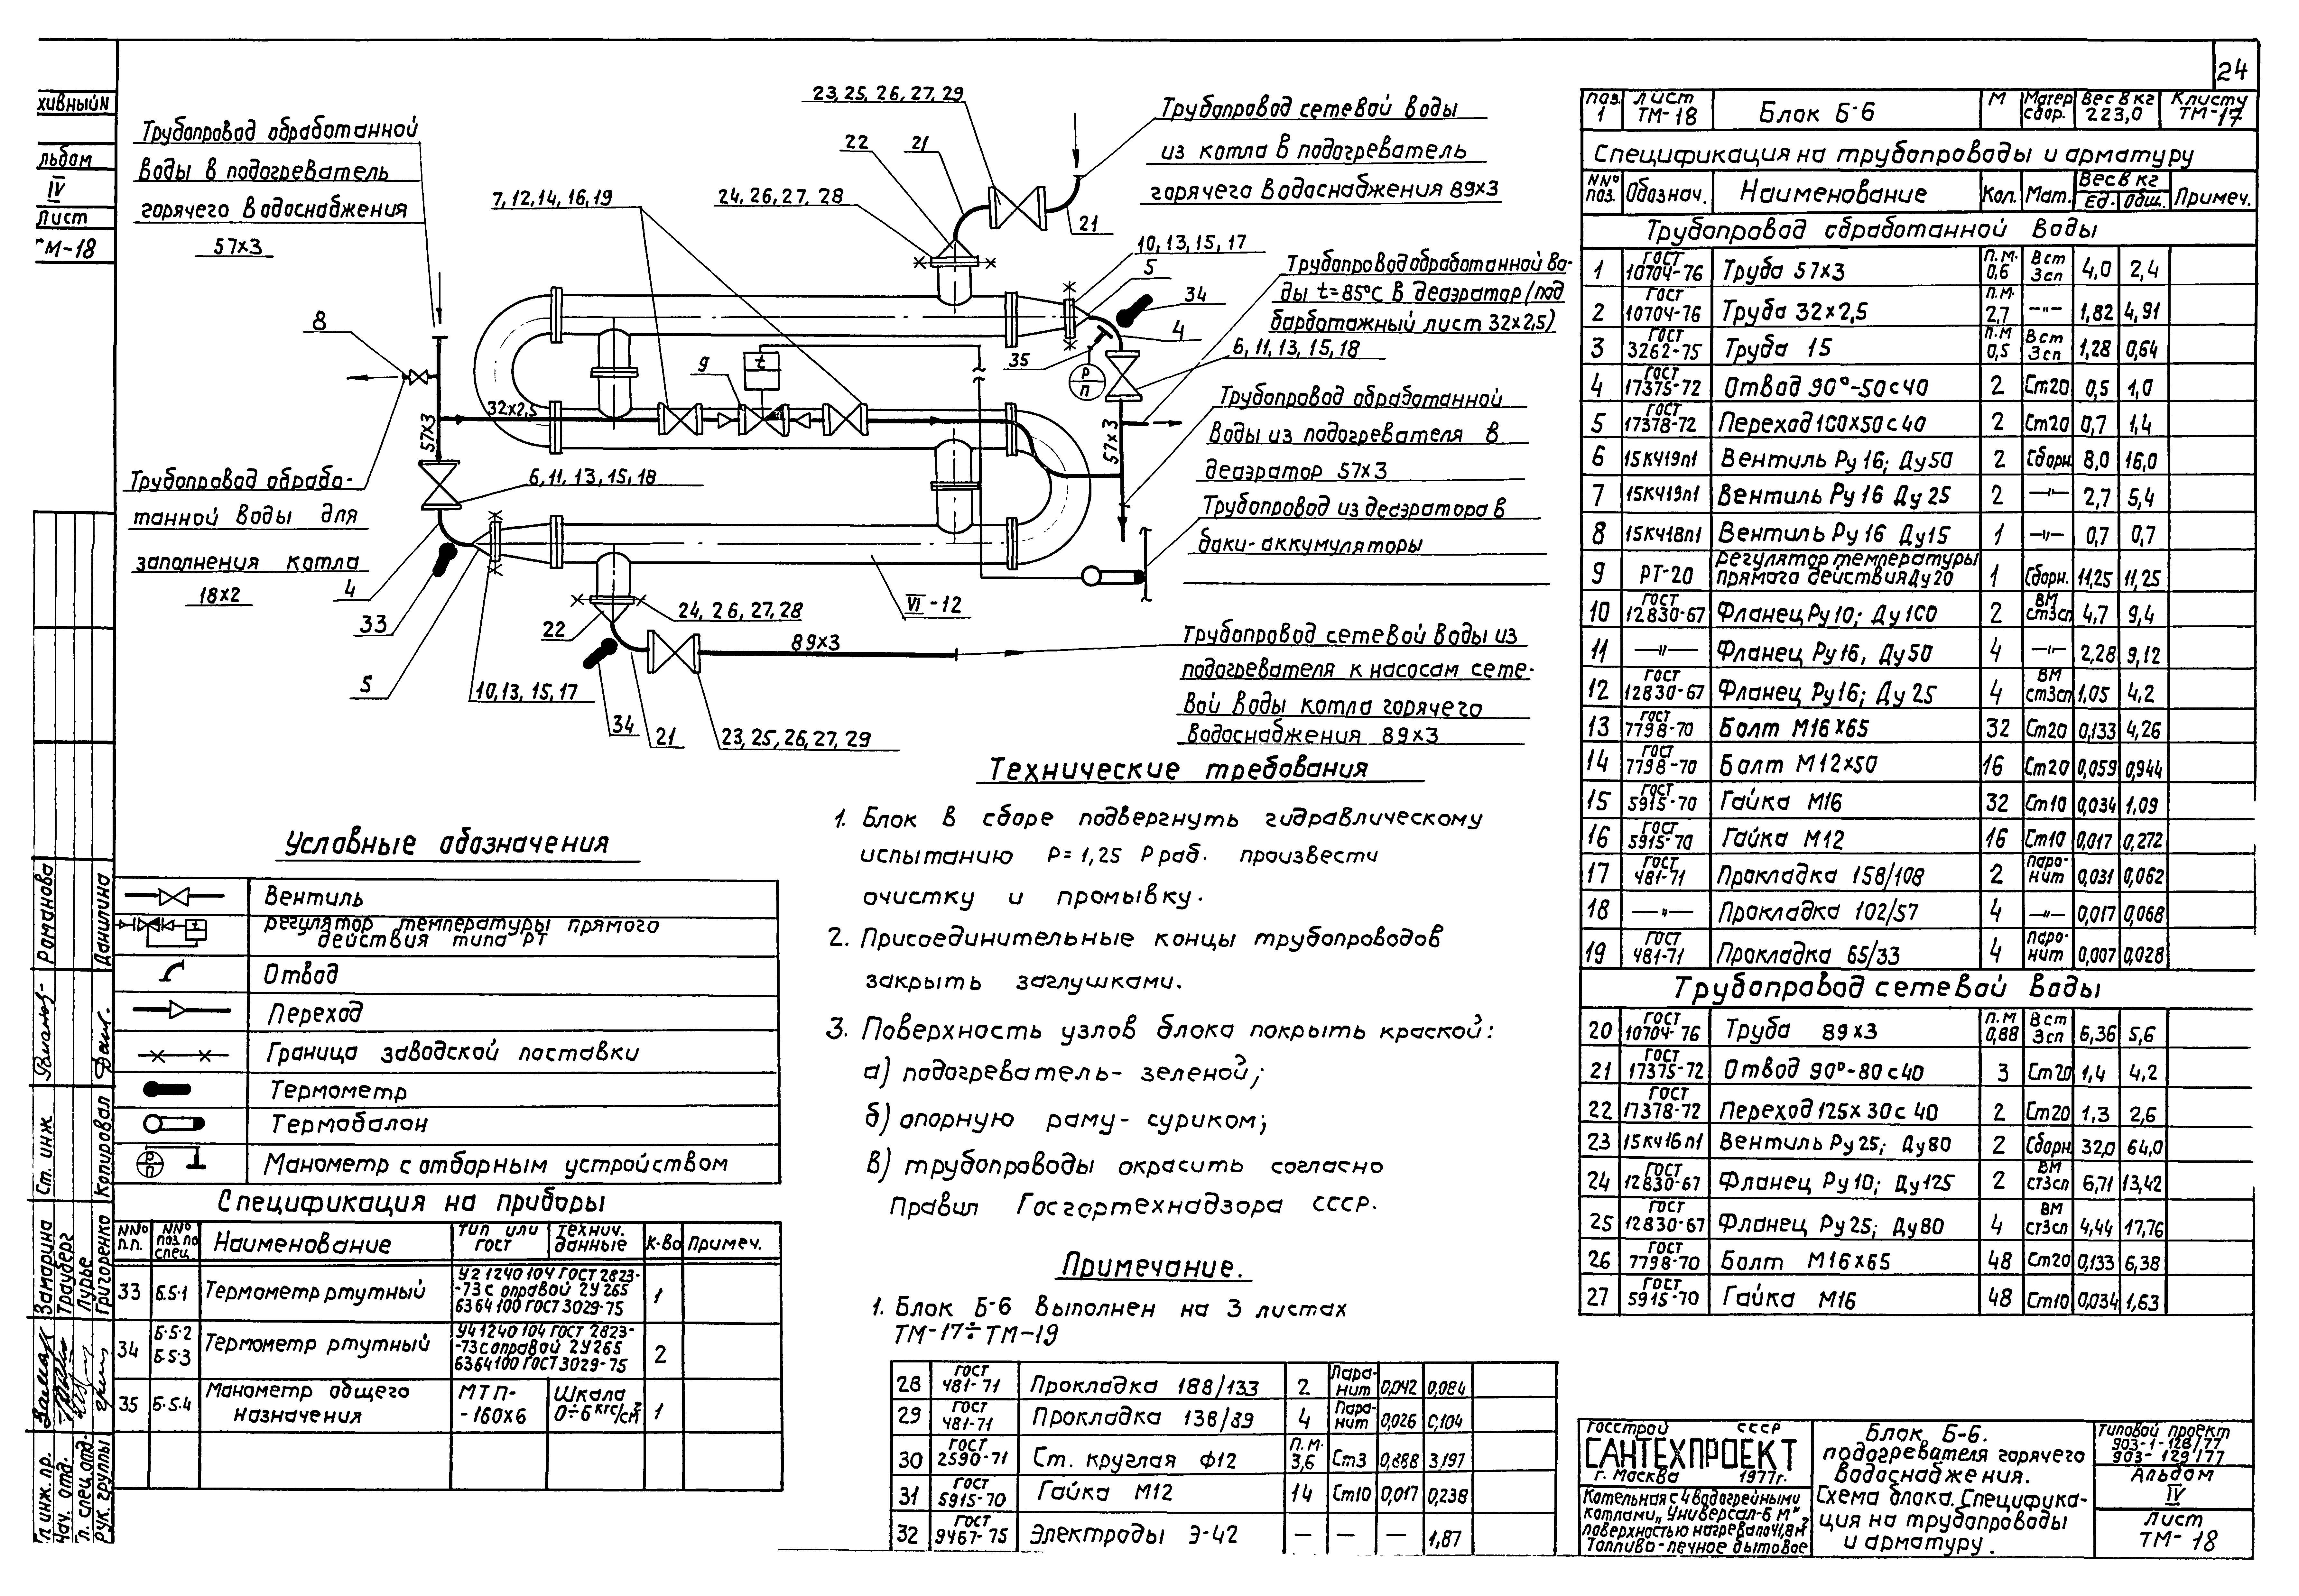 24
хивный N
льбом
IV
Лист
ТМ-18
Трубопровод обработанной
воды в подогреватель
горячего водоснабжения
57×3
23, 25, 26, 27, 29
22
21
24, 26, 27, 28
7, 12, 14, 16, 19
Трубопровод сетевой воды
из котла в подогреватель
горячего водоснабжения 89×3
21
10, 13, 15, 17
5
34
4
35
6, 11, 13, 15, 18
Трубопровод обработанной во-
ды t=85°С в деаэратор /под
барботажный лист 32×2,5)
8
9
t
32×2,5
57×3
57×3
Р
П
Трубопровод обработанной
воды из подогревателя в
деаэратор 57×3
Трубопровод из деаэратора в
баки-аккумуляторы
6, 11, 13, 15, 18
Трубопровод обрабо-
танной воды для
заполнения котла
18×2
4
33
5
10, 13, 15, 17
22
24, 26, 27, 28
VI-12
89×3
34
21
23, 25, 26, 27, 29
Трубопровод сетевой воды из
подогревателя к насосам сете-
вой воды котла горячего
водоснабжения 89×3
Технические требования
1. Блок в сборе подвергнуть гидравлическому
испытанию Р=1,25 Р раб. произвести
очистку и промывку.
2. Присоединительные концы трубопроводов
закрыть заглушками.
3. Поверхность узлов блока покрыть краской:
а) подогреватель- зеленой;
б) опорную раму- суриком;
в) трубопроводы окрасить согласно
Правил Госгортехнадзора СССР.
Примечание.
1. Блок Б-6 выполнен на 3 листах
ТМ-17÷ТМ-19
Условные обозначения
Вентиль
Регулятор температуры прямого
действия типа РТ
Отвод
Переход
Граница заводской поставки
Термометр
Термобалон
Р
П
Манометр с отборным устройством
Спецификация на приборы
NNº п.п. NNº поз. по спец. Наименование Тип или гост Технич. данные К-во Примеч.
33 Б.5-1 Термометр ртутный У2 1240 104 ГОСТ 2823-
-73 с оправой 2У 265
6364100 ГОСТ 3029-75 1
34 Б-5-2
Б-5-3 Термометр ртутный У4 1240 104 ГОСТ 2823-
-73 с оправой 2У265
6364100 ГОСТ 3029-75 2
35 Б-5-4 Манометр общего
назначения МТП-
-160×6 Шкала
0÷6 кгс/см² 1
поз. 1 лист ТМ-18 Блок Б-6 М Матер. Сбор. Вес в кг 223,0 К листу ТМ-17
Спецификация на трубопроводы и арматуру
NNº поз. Обознач. Наименование Кол. Мат. Вес в кг Ед. Общ. Примеч.
Трубопровод обработанной воды
1 ГОСТ 10704-76 Труба 57×3 п.м. 0,6 Вст 3сп 4,0 2,4
2 ГОСТ 10704-76 Труба 32×2,5 п.м. 2,7 —"— 1,82 4,91
3 ГОСТ 3262-75 Труба 15 п.м 0,5 Вст 3сп 1,28 0,64
4 ГОСТ 17375-72 Отвод 90°-50с40 2 Ст20 0,5 1,0
5 ГОСТ 17378-72 Переход 100×50с40 2 Ст20 0,7 1,4
6 15кч19п1 Вентиль Ру 16; Ду50 2 Сборн. 8,0 16,0
7 15кч19п1 Вентиль Ру 16 Ду 25 2 —"— 2,7 5,4
8 15кч18п1 Вентиль Ру 16 Ду15 1 —"— 0,7 0,7
9 РТ-20 Регулятор температуры прямого действия Ду20 1 Сборн. 11,25 11,25
10 ГОСТ 12830-67 Фланец Ру10; Ду100 2 ВМ ст3сп 4,7 9,4
11 —"— Фланец Ру16, Ду50 4 —"— 2,28 9,12
12 ГОСТ 12830-67 Фланец Ру16; Ду 25 4 ВМ ст3сп 1,05 4,2
13 ГОСТ 7798-70 Болт М16×65 32 Ст20 0,133 4,26
14 ГОСТ 7798-70 Болт М12×50 16 Ст20 0,059 0,944
15 ГОСТ 5915-70 Гайка М16 32 Ст10 0,034 1,09
16 ГОСТ 5915-70 Гайка М12 16 Ст10 0,017 0,272
17 ГОСТ 481-71 Прокладка 158/108 2 Паро-нит 0,031 0,062
18 —"— Прокладка 102/57 4 —"— 0,017 0,068
19 ГОСТ 481-71 Прокладка 65/33 4 Паро-нит 0,007 0,028
Трубопровод сетевой воды
20 ГОСТ 10704-76 Труба 89×3 п.м 0,88 Вст 3сп 6,36 5,6
21 ГОСТ 17375-72 Отвод 90°-80с40 3 Ст20 1,4 4,2
22 ГОСТ 17378-72 Переход 125×80с 40 2 Ст20 1,3 2,6
23 15кч16п1 Вентиль Ру 25; Ду80 2 Сборн. 32,0 64,0
24 ГОСТ 12830-67 Фланец Ру 10; Ду125 2 ВМ ст3сп 6,71 13,42
25 ГОСТ 12830-67 Фланец Ру 25; Ду80 4 ВМ ст3сп 4,44 17,76
26 ГОСТ 7798-70 Болт М16×65 48 Ст20 0,133 6,38
27 ГОСТ 5915-70 Гайка М16 48 Ст10 0,034 1,63
28 ГОСТ 481-71 Прокладка 188/133 2 Пара-нит 0,042 0,084
29 ГОСТ 481-71 Прокладка 138/89 4 Пара-нит 0,026 0,104
30 ГОСТ 2590-71 Ст. круглая Ф12 п.м. 3,6 Ст3 0,888 3,197
31 ГОСТ 5915-70 Гайка М12 14 Ст10 0,017 0,238
32 ГОСТ 9467-75 Электроды Э-42 — — — 1,87
Госстрой СССР
САНТЕХПРОЕКТ
г. Москва 1977г.
Котельная с 4 водогрейными
котлами „Универсал-6 М"
поверхностью нагрева по 41,8м²
Топливо-печное бытовое
Блок Б-6.
подогревателя горячего
водоснабжения.
Схема блока. Специфика-
ция на трубопроводы
и арматуру.
Типовой проект
903-1-128/77
903-1-129/77
Альбом
IV
Лист
ТМ-18
Гл инж. пр. Замарина
Нач. отд. Трауберг
Гл. спец. отд. Лурье
Рук. группы Григоренко
Ст. инж Романова
Копировал Данилина